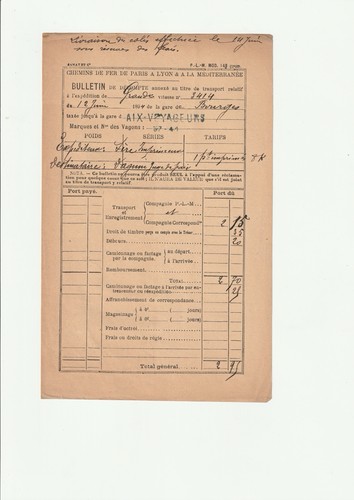 Livraison de colis effectuée le 14 Juin
sous réserves des frais.
P.-L.-M. MOD.
CHEMINS DE FER DE PARIS A LYON & A LA MÉDITERRANÉE
BULLETIN DE DÉCOMPTE annexé au titre de transport relatif
à l'expédition de Grande vitesse n° 3419
du 12 Juin de la gare de Bourges
taxée jusqu'à la gare d'AIX-VOYAGEURS
Marques et Nos des Vagons:
POIDS SÉRIES TARIFS
Expéditeur: Sire Imprimeur 1 pt imprimés
Destinataire:
NOTA. — Ce bulletin ne pourra être produit SEUL à l'appel d'une réclamation
pour quelque cause que ce soit; IL N'AURA DE VALEUR que s'il est joint
au titre de transport y relatif.
Port payé. Port dû
Transport et Enregistrement
Compagnie P.-L.-M
et
Compagnie Correspondte
2 15
Droit de timbre payé ou en compte 35
Débours 20
Camionnage ou factage par la compagnie.
au départ
à l'arrivée
Remboursement
TOTAL 2 70
Camionnage ou factage à l'arrivée par entrepreneur ou réexpédition 25
Affranchissement de correspondance
Magasinage
à 0f. ( jours)
à 0f. ( jours)
Frais d'octroi
Frais ou droits de régie
Total général 2 95